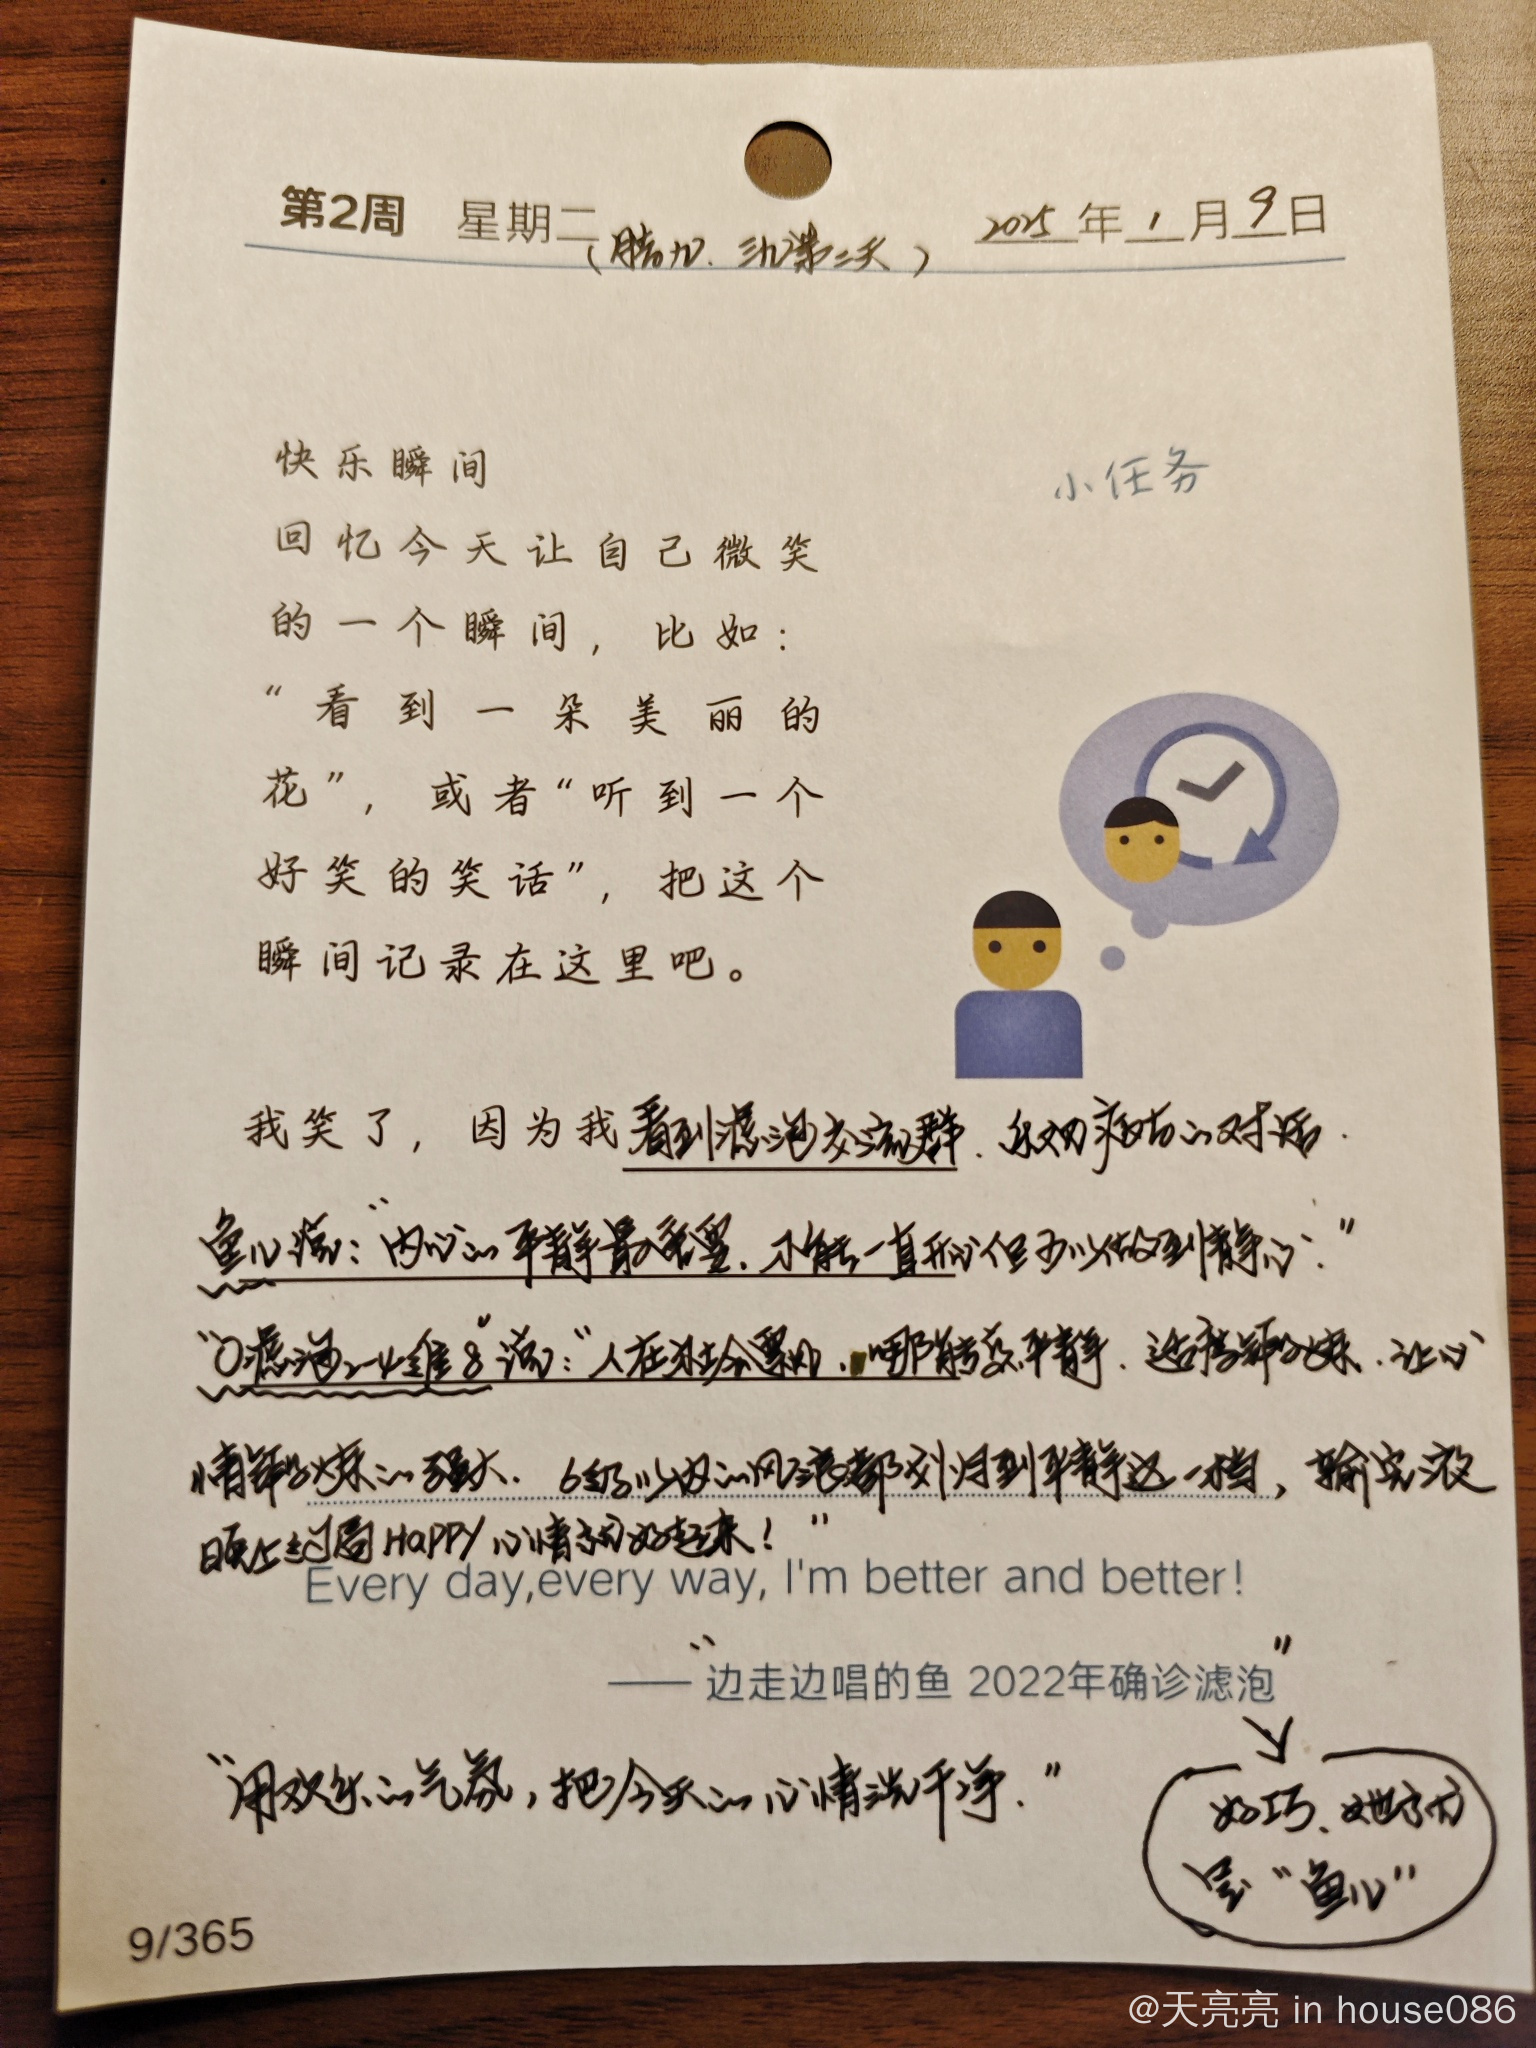 第2周 星期二 2025年1月9日
(腊九、三九第一天)
小任务
快乐瞬间
回忆今天让自己微笑
的一个瞬间，比如：
“看到一朵美丽的
花”，或者“听到一个
好笑的笑话”，把这个
瞬间记录在这里吧。
我笑了，因为我看到滤泡交流群、的对话.
鱼儿说：“内心的平静最重要、不能一直开心但可以做到静心.”
说：“人在社会里，哪能平静.让心
情的强大.6级以内的风浪都划归到平静这一档，输完液
晚上过周HAPPY心情就好起来！”
Every day,every way, I'm better and better!
——“边走边唱的鱼 2022年确诊滤泡”
“用欢乐的气氛，把今天的心情洗干净.”
好巧、她就
是“鱼儿”
9/365
@天亮亮 in house086